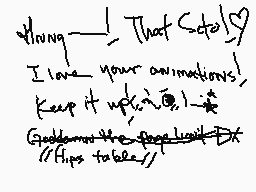 Hnng—! That Seto!♡
I love your animations!
Keep it up!
Goddamn the page limit D:
//flips table//